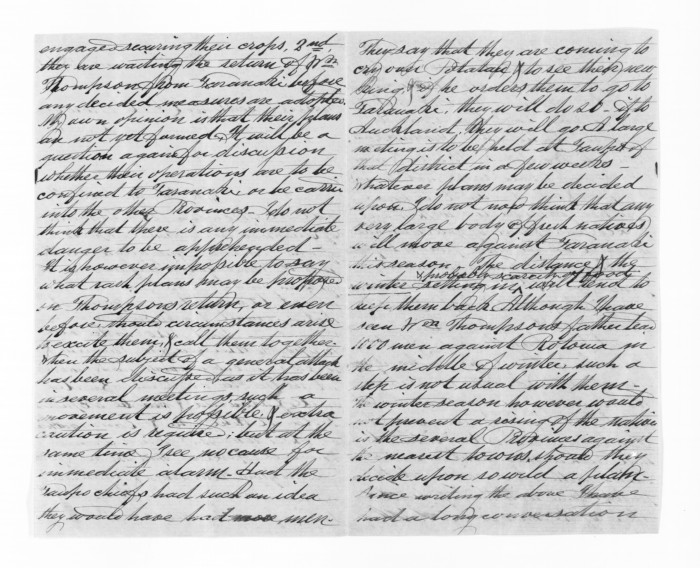 engaged securing their crops, 2nd,
they are waiting the return of Wm
Thompson from Taranaki before
any decided measures are adopted.
My own opinion is that their plans
are not yet formed. It will be a
question again for discussion
whether their operations are to be
confined to Taranaki or be carried
into the other Provinces. I do not
think that there is any immediate
danger to be apprehended -
It is however impossible to say
what rash plans may be proposed
on Thompsons return, or even
before, should circumstances arise
to excite them, & call them together.
When the subject of a general attack
has been discussed, as it has been
in several meetings, such a
movement is possible & extra
caution is requisite; but at the
same time I see no cause for
immediate alarm. Had the
Taupo chiefs had such an idea
they would have had more men -
They say that they are coming to
cry over Potatau & to see their new
King; if he orders them to go to
Taranaki, they will do so - if to
Auckland, they will go. A large
meeting is to be held at Taupo of
that District in a few weeks -
Whatever plans may be decided
upon I do not now think that any
very large body of fresh natives
will move against Taranaki
this season. The distance & the
& probable scarcity of food
winter setting in, will tend to
keep them back. Although I have
seen Wm Thompsons father lead
1000 men against Rotorua in
the middle of winter, such a
step is not usual with them -
The winter season however would
not prevent a rising of the natives
in the several Provinces against
the nearest towns, should they
decide upon so wild a plan -
Since writing the above I have
had a long conversation